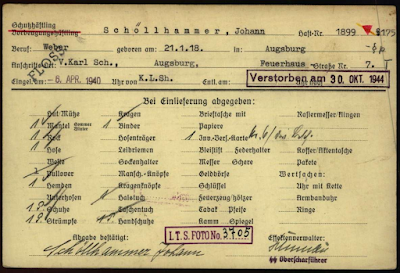 Schutzhäftling
Vorbeugungshäftling Schöllhammer, Johann Haft-Nr. 1899 9175
Beruf: Weber geboren am 21.1.18. in Augsburg
V.Karl Sch., Augsburg, Feuerhaus Straße Nr. 7.
FLOSS
- 6. APR. 1940 Uhr von K.L.Sh. Entl.am Verstorben am 30. OKT. 1944
Bei Einlieferung abgegeben:
Hut Mütze Kragen Brieftasche mit Rasiermesser/Klingen
1 Mantel 1 Binder Papiere
1 Rock Hosenträger 1 Inv.-Vers.-Karte
1 Hose Leibriemen Bleistift Federhalter Koffer/Aktentasche
Weste Sockenhalter Messer Schere Pakete
Pullover Mansch.-Knöpfe Geldbörse Wertsachen:
1 Hemden Kragenknöpfe Schlüssel Uhr mit Kette
Unterhosen 1 Halstuch Feuerzeug/hölzer Armbanduhr
1 P. Schuhe Taschentuch Tabak Pfeife Ringe
1 P. Strümpfe Handschuhe Kamm Spiegel
Abgabe bestätigt: I.T.S. FOTO No. 3705 Effektenverwalter:
Schöllhammer Johann
SS Oberscharführer